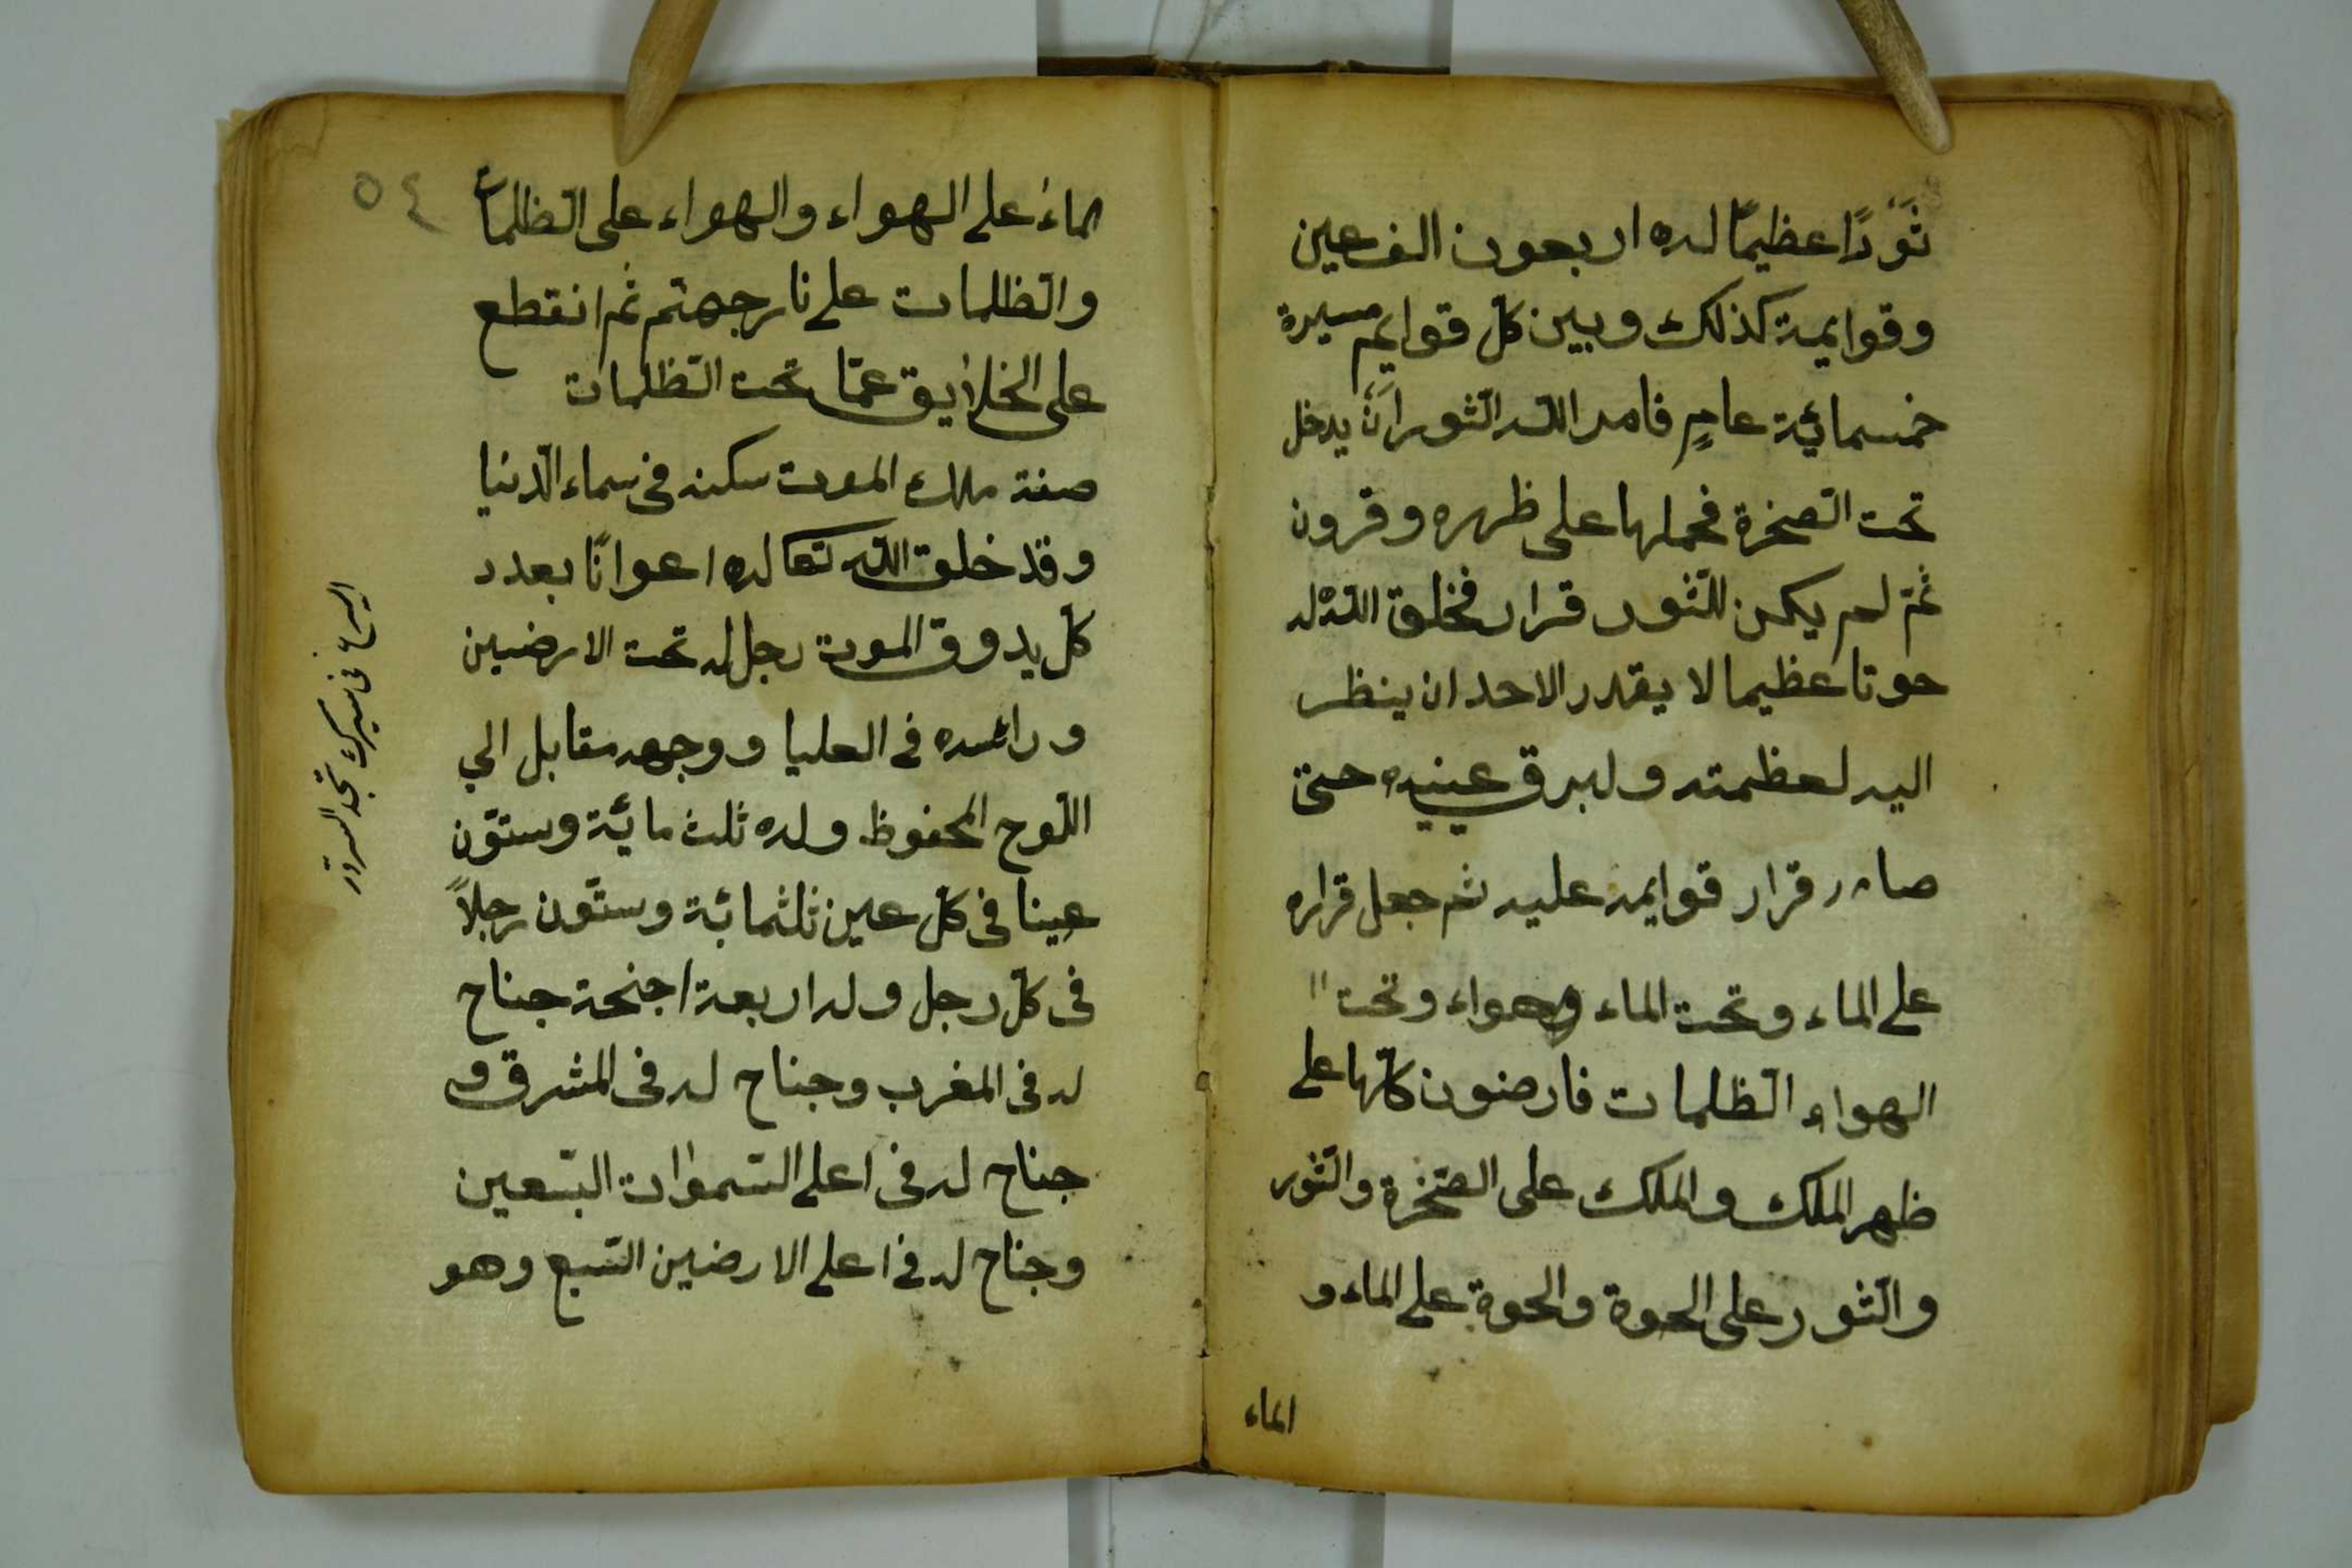 ثَوْرًا عظيمًا له اربعون الف عين
وقوايمة كذلك وبين كلّ قوايم مسيرة
خمسمائة عامٍ فامر اللّه الثّور اَنْ يدخل
تحت الصّخرة فحملها على ظهره وقرون
ثمّ لم يكن للثّور قرار فخلق اللّه له
حوتا عظيما لا يقدر الاحد ان ينظر
اليه لعظمته ولبرق عينيه حتّى
صار قرار قوايمه عليه ثم جعل قراره
على الماء وتحت الماء وهواء وتحت
الهواء الظّلمات فارضون كلّها على
ظهر الملك والملك على الصّخرة والثّور
والثّور على الحوة والحوة على الماء و
الماء
٥٤
الماء على الهواء والهواء على الظّلمات
والظّلمات على نار جهنّم ثم انقطع
على الخلايق عمّا تحت الظّلمات
صفة ملك الموت سكنه فى سماء الدّنيا
وقد خلق اللّه تعا له اعوانًا بعدد
كلّ يدوق الموت رجل له تحت الارضين
ورائسه فى العليا ووجهه مقابل الي
اللّوح المحفوظ وله ثلث مائة وستّون
عينا فى كلّ عين ثلثمائة وستّون رجلاً
فى كلّ رجل وله اربعة اجنحة جناح
له فى المغرب وجناح له فى المشرق و
جناح له فى اعلى السّموات السّبعين
وجناح له فى اعلى الارضين السّبع وهو
فى سيرك تجد السرور